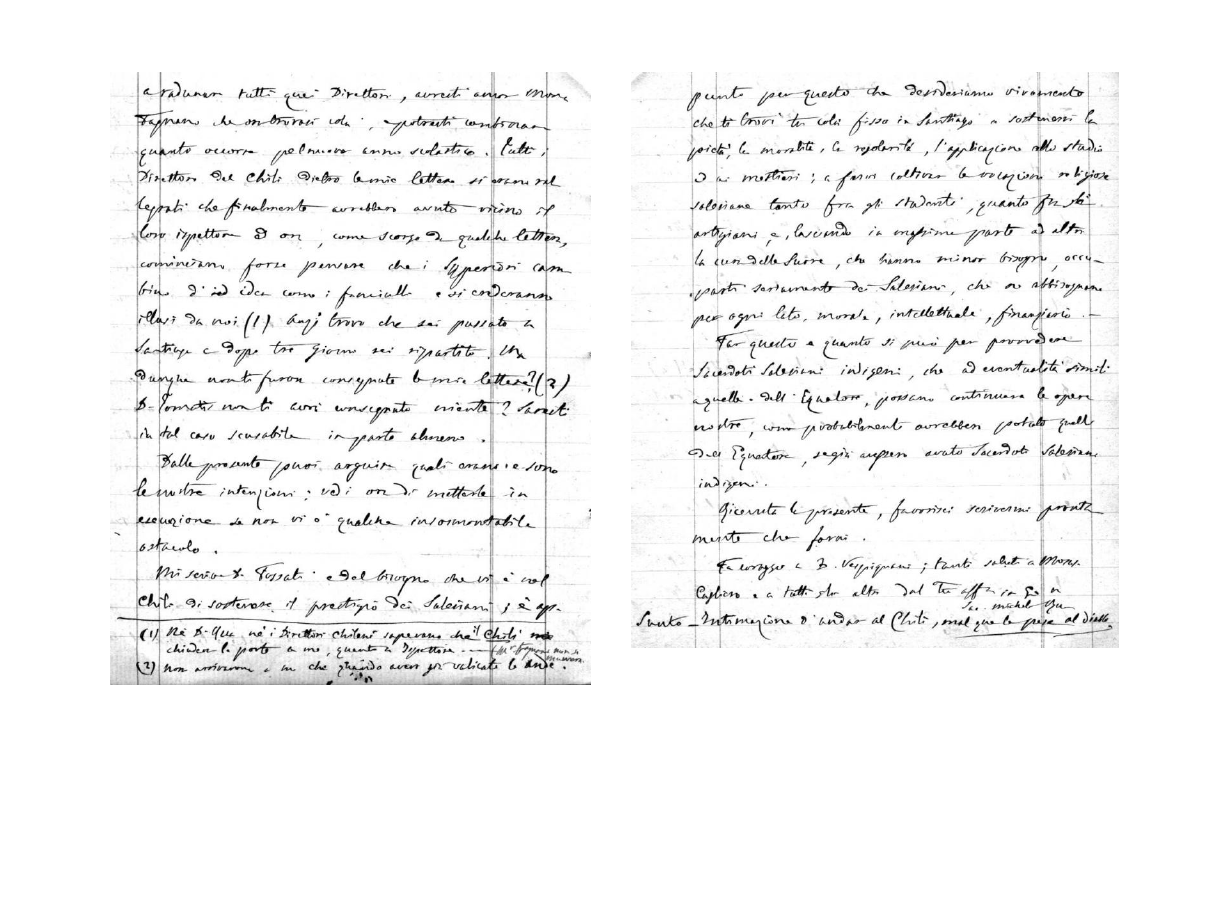 a radunar tutti quei Direttori, avresti ancor Mons.
Fagnano che ontrovasi colà, e potresti combinar
quanto occorre pel nuovo anno scolastico. Tutti i
Direttori del Chilì dietro le mie lettere si erano ral
legrati che finalmente avrebbero avuto vicino il
loro ispettore ed ora, come scorgo da qualche lettera,
cominciano forse pensare che i Superiori cam
bino d'idea come i fanciulli e si crederanno
illusi da noi (1) Anzi trovo che sei passato a
Santiago e dopo tre giorno sei ripartito. Ma
dunque non ti furon consegnate le mie lettere? (2)
D. Tomatis non ti avrà consegnato niente? Saresti
in tal caso scusabile in parte almeno.
Dalla presente puoi arguire quali erano e sono
le nostre intenzioni; vedi ora di metterle in
esecuzione se non vi è qualche insormontabile
ostacolo.
Mi scrive D. Fassati e del bisogno che vi è nel
Chilì di sostenere il prestigio dei Salesiani; è ap-
(1) Nè D. Rua nè i Direttori chileni sapevano che il Chilì
chiudea le porte a me, quanto a Ispettore --- (Mr Fagnano non si
(2) non arrivarono a me che quando avea già valicate le Ande.
punto per questo che desideriamo vivamente
che ti trovi tu colà fisso in Santiago a sostenervi la
pietà, la moralità, la regolarità, l'applicazione allo studio
ed ai mestieri; a farvi coltivar le vocazioni religiose
salesiane tanto fra gli studenti, quanto fra gli
artigiani e, lasciando in massima parte ad altri
la cura delle Suore, che hanno minor bisogno, occu-
parti seriamente dei Salesiani, che ne abbisognano
per ogni lato, morale, intellettuale, finanziario. —
Far questo e quanto si può per provvedere
Sacerdoti Salesiani indigeni, che ad eventualità simili
a quelle dell'Equatore, possano continuare le opere
nostre, come probabilmente avrebber potuto quelle
dell'Equatore, se già avessero avuto Sacerdoti Salesiani
indigeni.
Ricevuta la presente, favorisci scrivermi pronta
mente che farai.
Fa coraggio a D. Vespignani; tanti saluti a Mons.
Cagliero e a tutti gli altri dal Tuo aff. in G. e M.
Sac. Michel Rua
Sunto — Intimazione d'andar al Chilì,